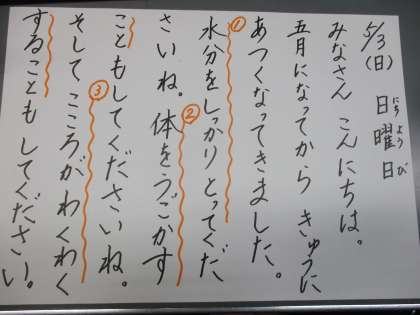 5/3(日)日曜日
にちようび
みなさん こんにちは。
五月になってから きゅうに
あつくなってきました。
①
水分をしっかり とってくだ
さいね。体をうごかす
②
こともしてくださいね。
③
そして こころがわくわく
することも してください。